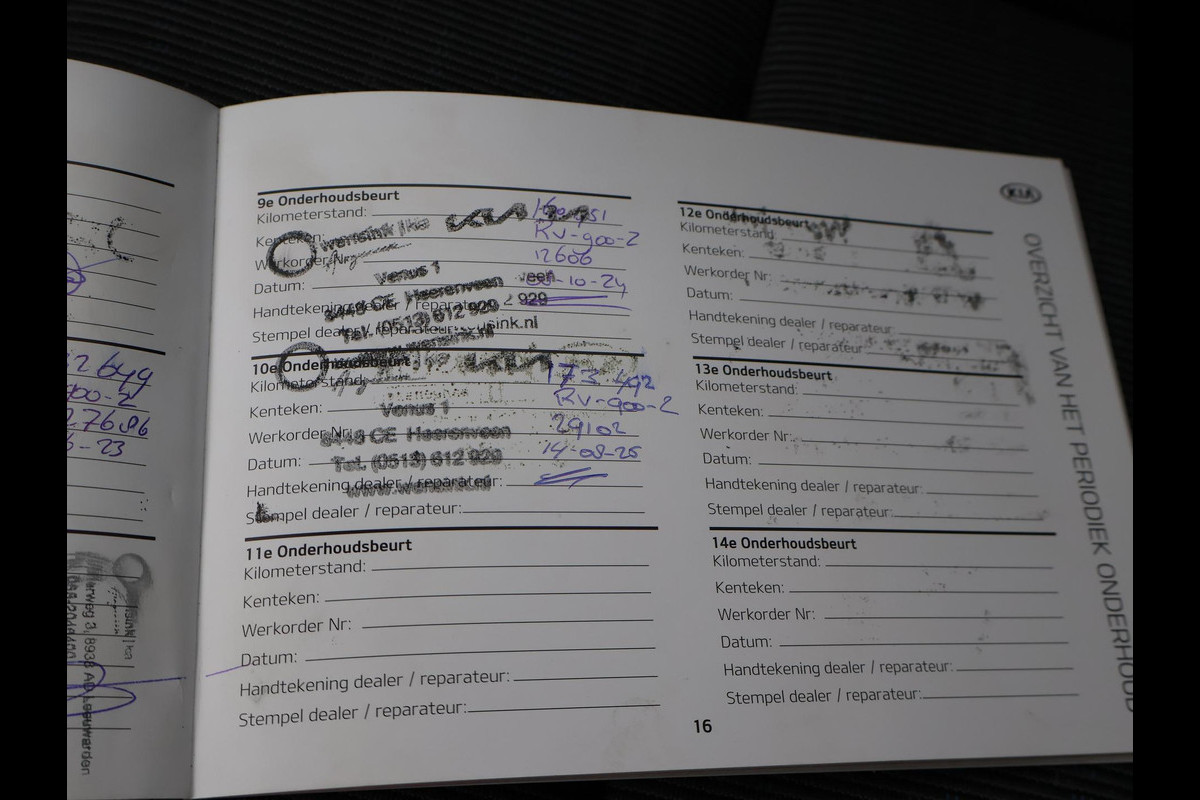 12649
900-2
27686
-23
erweg 3, 8938 AD Leeuwarden
9e Onderhoudsbeurt
Kilometerstand:
Kenteken: RV-900-2
Werkorder Nr: 12606
Datum: -10-24
Handtekening dealer / reparateur:
Stempel dealer / reparateur:
wensink
Venus 1
8448 CE Heerenveen
Tel. (0513) 612 929
10e Onderhoudsbeurt
Kilometerstand: 173.492
Kenteken: RV-900-2
Werkorder Nr: 29102
Datum: 14-08-25
Handtekening dealer / reparateur:
Stempel dealer / reparateur:
Venus 1
8448 CE Heerenveen
Tel. (0513) 612 929
www.wensink.nl
11e Onderhoudsbeurt
Kilometerstand:
Kenteken:
Werkorder Nr:
Datum:
Handtekening dealer / reparateur:
Stempel dealer / reparateur:
12e Onderhoudsbeurt
Kilometerstand:
Kenteken:
Werkorder Nr:
Datum:
Handtekening dealer / reparateur:
Stempel dealer / reparateur:
13e Onderhoudsbeurt
Kilometerstand:
Kenteken:
Werkorder Nr:
Datum:
Handtekening dealer / reparateur:
Stempel dealer / reparateur:
14e Onderhoudsbeurt
Kilometerstand:
Kenteken:
Werkorder Nr:
Datum:
Handtekening dealer / reparateur:
Stempel dealer / reparateur:
16
KIA
OVERZICHT VAN HET PERIODIEK ONDERHOUD